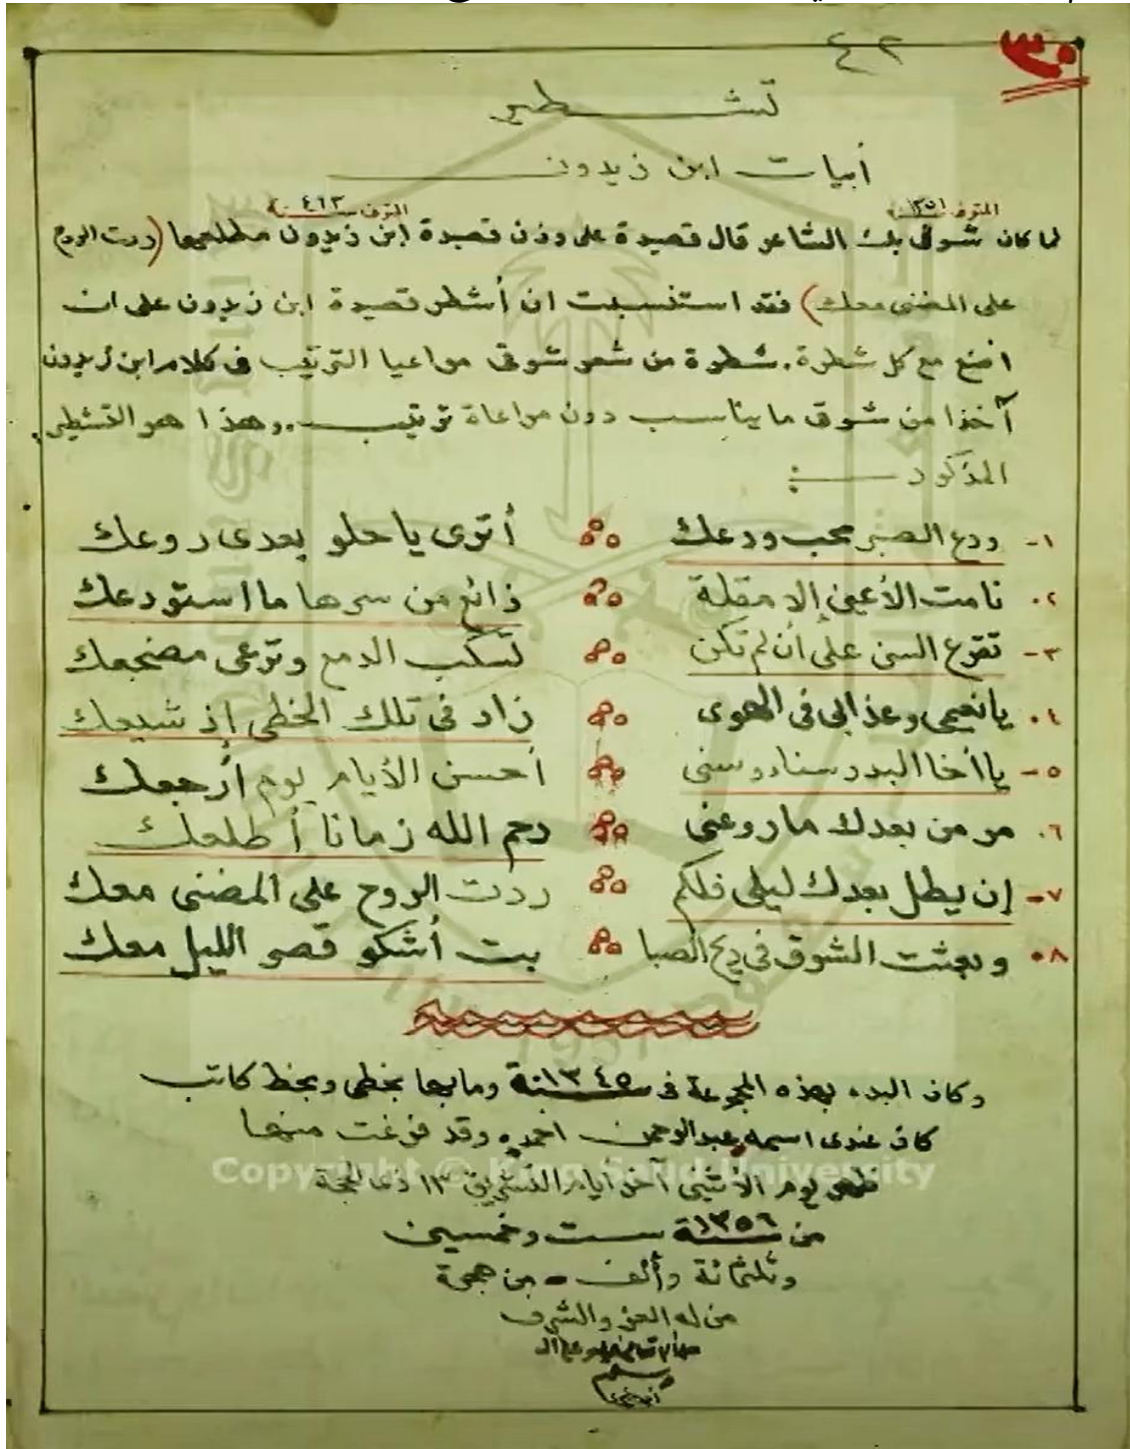 ٤٢
٣٠
تشطير
أبيات ابن زيدون
المتوفى ١٣٥١ المتوفى سنة ٤٦٣ هـ
لما كان شوقى بك الشاعر قال قصيدة على وزن قصيدة ابن زيدون مطلعها (ردت الروح
على المضنى معك) فقد استنسبت ان أشطر قصيدة ابن زيدون على ان
اضع مع كل شطرة. شطرة من شعر شوقى مراعيا الترتيب فى كلام ابن زيدون
آخذا من شوقى ما يناسب دون مراعاة ترتيب .. وهذا هو التشطير
المذكور :
١- ودع الصبر محب ودعك أترى يا حلو بعدى روعك
٢. نامت الأعين إلا مقلة ذائع من سرها ما استودعك
٣- تقرع السن على أن لم تكن تسكب الدمع وترعى مضجعك
٤. يا نعيمى وعذابى فى الهوى زاد فى تلك الخطى إذ شيعك
٥- يا أخا البدر سناء وسنى أحسن الأيام يوم أرجعك
٦. مر من بعدك ما روعنى رحم الله زمانا أطلعك
٧- إن يطل بعدك ليلى فلكم ردت الروح على المضنى معك
٨. وبعثت الشوق فى ريح الصبا بت أشكو قصر الليل معك
وكان البدء بهذه المجموعة فى سنة ١٣٤٥ وما بها بخطى وبخط كاتب
كان عندى اسمه عبدالرحمن احمد وقد فرغت منها
ظهر يوم الأثنين آخر أيام التشريق ١٣ ذى الحجة
من سنة ١٣٥٦ ست وخمسين
وثلثمائة وألف - من هجرة
من له العز والشرف
وسلم
Copyright © King Saud University